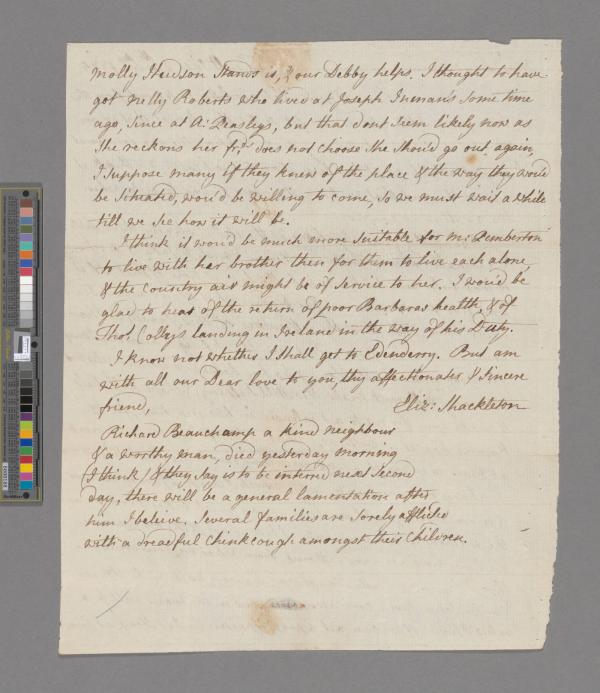 Molly Hudson Stands is, & our Debby helps. I thought to have
got Nelly Roberts who lived at Joseph Inman's some time
ago, since at A: Peasleys, but that dont seem likely now as
She reckons her frds. does not choose She Should go out again,
I suppose many if they knew of the place & the way they wou'd
be Situated, wou'd be willing to come, So we must wait a while
till we See how it will be.
I think it wou'd be much more Suitable for M: Pemberton
to live with her brother then for them to live each alone,
& the Country air might be of Service to her. I wou'd be
glad to hear of the return of poor Barbaras health, & of
Thos. Colleys landing in Ireland in the way of his Duty.
I know not whether I Shall get to Edenderry. But am
with all our Dear love to you, thy affectionate & Sincere
friend,
Eliz: Shackleton
Richard Beauchamp a kind neighbour
& a worthy man, died yesterday morning
(I think) & they Say is to be interred next Second
day, there will be a general lamentation after
him I beleive. Several families are Sorely afflicted
with a dreadful Chinkcough amongst their Children.